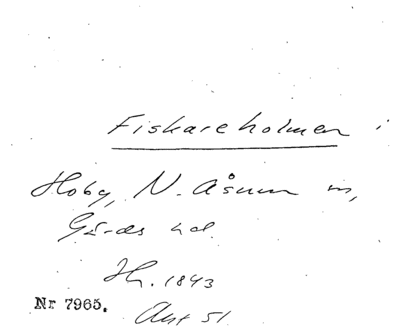 Fiskareholmen i
Hoby, N. Åsum sn,
Gärds hd.
H. 1843
Nr 7965. Akt 51